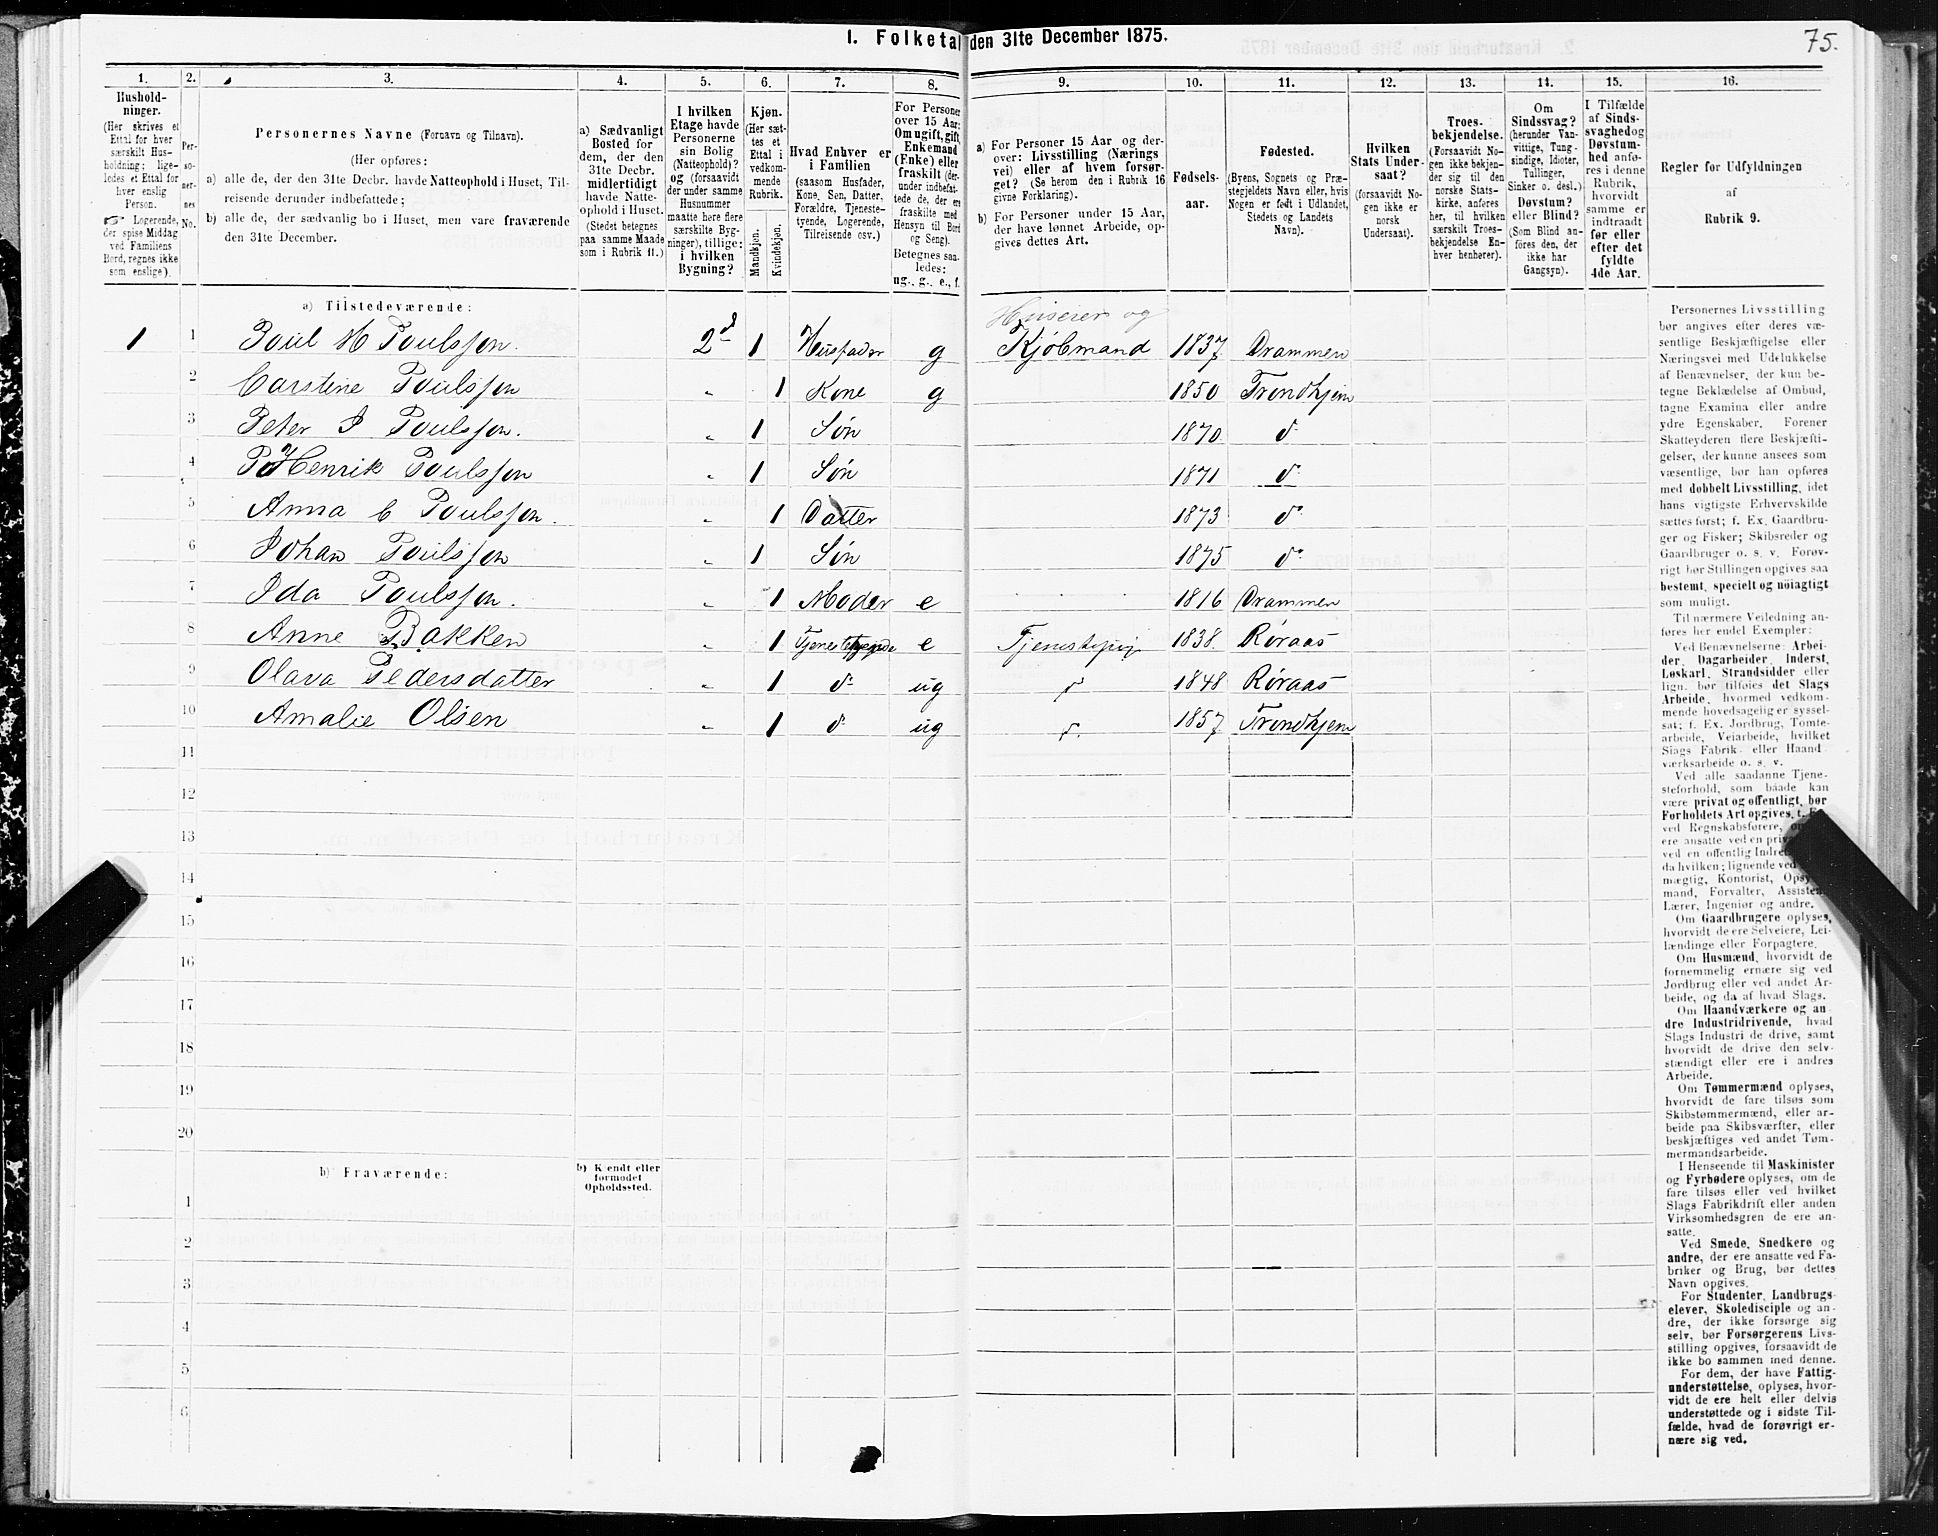 I. Folketal den 31te December 1875.
75.
1. 2. 3. 4. 5. 6. 7. 8. 9. 10. 11. 12. 13. 14. 15. 16.
Hushold-
ninger.
(Her skrives et
Ettal for hver
særskilt Hus-
holdning; lige-
ledes et Ettal for
hver enslig
Person.
☞ Logerende,
der spise Middag
ved Familiens
Bord, regnes ikke
som enslige).
Per-
so-
ner-
nes
No.
Personernes Navne (Fornavn og Tilnavn).
(Her opføres:
a) alle de, der den 31te Decbr. havde Natteophold i Huset, Til-
reisende derunder indbefattede;
b) alle de, der sædvanlig bo i Huset, men vare fraværende
den 31te December.
a) Sædvanligt
Bosted for
dem, der den
31te Decbr.
midlertidigt
havde Natte-
ophold i Huset.
(Stedet betegnes
paa samme Maade
som i Rubrik 11.)
I hvilken
Etage havde
Personerne
sin Bolig
(Natteophold)?
og (forsaavidt
der under samme
Husnummer
maatte høre flere
særskilte Byg-
ninger), tillige:
i hvilken
Bygning?
Kjøn.
(Her sæt-
tes et
Ettal i
vedkom-
mende
Rubrik.
Mandkjøn.
Kvindekjøn.
Hvad Enhver er
i Familien
(saasom Husfader,
Kone, Søn, Datter,
Forældre, Tjeneste-
tyende, Logerende,
Tilreisende osv.)
For Personer
over 15 Aar:
Om ugift, gift,
Enkemand
(Enke) eller
fraskilt (der-
under indbefat-
tede de, der ere
fraskilte med
Hensyn til Bord
og Seng).
Betegnes saa-
ledes:
ug., g., e., f.
a) For Personer 15 Aar og der-
over: Livsstilling (Nærings
vei) eller af hvem forsør-
get? (Se herom den i Rubrik 16
givne Forklaring).
b) For Personer under 15 Aar,
der have lønnet Arbeide, op-
gives dettes Art.
Fødsels-
aar.
Fødested.
(Byens, Sognets og Præ-
stegjeldets Navn eller, hvis
Nogen er født i Udlandet,
Stedets og Landets
Navn).
Hvilken
Stats Under-
saat?
(forsaavidt No-
gen ikke er
norsk
Undersaat).
Troes-
bekjendelse.
(Forsaavidt No-
gen ikke bekjen-
der sig til den
norske Stats-
kirke, anføres
her, til hvilken
særskilt Troes-
bekjendelse En-
hver henhører).
Om
Sindssvag?
(herunder Van-
vittige, Tung-
sindige, Idioter,
Tullinger,
Sinker o. desl.)
Døvstum?
eller Blind?
(Som Blind an-
føres den, der
ikke har
Gangsyn).
I Tilfælde
af Sinds-
svaghed og
Døvstum-
hed anfø-
res i denne
Rubrik,
hvorvidt
samme er
indtraadt
før eller
efter det
fyldte
4de Aar.
Regler for Udfyldningen
af
Rubrik 9.
a) Tilstedeværende:
1 1 Poul H Poulsson. 2d 1 Husfader g Huseier og Kjøbmand 1837 Drammen
2 Carstine Poulsson " 1 Kone g 1850 Trondhjem
3 Peter I Poulsson. " 1 Søn 1870 do
4 P Henrik Poulsson " 1 Søn 1871 do
5 Anna C Poulsson. " 1 Datter 1873 do
6 Johan Poulsson " 1 Søn 1875 do
7 Ida Poulsson. " 1 Moder e 1816 Drammen
8 Anne Bakken " 1 Tjenestetyende e Tjenestepige 1838. Røraas
9 Olava Pedersdatter " 1 do ug do 1848 Røraas
10 Amalie Olsen " 1 do ug do 1857 Trondhjem
11
12
13
14
15
16
17
18
19
20
b) Fraværende:
b) Kendt eller
formodet
Opholdssted.
1
2
3
4
5
6
Personernes Livsstilling
bør angives efter deres væ-
sentlige Beskjæftigelse eller
Næringsvei med Udelukkelse
af Benævnelser, der kun be-
tegne Beklædelse af Ombud,
tagne Examina eller andre
ydre Egenskaber. Forener
Skatteyderen flere Beskjæfti-
gelser, der kunne ansees som
væsentlige, bør han opføres
med dobbelt Livsstilling, idet
hans vigtigste Erhvervskilde
sættes først; f. Ex. Gaardbru-
ger og Fisker; Skibsreder og
Gaardbruger o. s. v. Forøv-
rigt bør Stillingen opgives saa
bestemt, specielt og nöiagtigt
som muligt.
Til nærmere Veiledning an-
føres her endel Exempler:
Ved Benævnelserne: Arbei-
der, Dagarbeider, Inderst,
Løskarl, Strandsidder eller
lign. bør tilføies det Slags
Arbeide, hvormed vedkom-
mende hovedsagelig er syssel-
sat; f. Ex. Jordbrug, Tomte-
arbeide, Veiarbeide, hvilket
Slags Fabrik- eller Haand
værksarbeide o. s. v.
Ved alle saadanne Tjene-
steforhold, som baade kan
være privat og offentligt, bør
Forholdets Art opgives, t.
ved Regnskabsførere,
ere ansatte ved en
ved en offentlig
da hvilken; lignende ved
mægtig, Kontorist,
mand, Forvalter,
Lærer, Ingeniør og andre.
Om Gaardbrugere oplyses,
hvorvidt de ere Selveiere, Lei-
lændinge eller Forpagtere.
Om Husmænd, hvorvidt de
fornemmelig ernære sig ved
Jordbrug eller ved andet Ar-
beide, og da af hvad Slags.
Om Haandværkere og an-
dre Industridrivende, hvad
Slags Industri de drive, samt
hvorvidt de drive den selv-
stændigt eller ere i andres
Arbeide.
Om Tømmermænd oplyses,
hvorvidt de fare tilsøs som
Skibstømmermænd, eller ar-
beide paa Skibsværfter, eller
beskjæftiges ved andet Tøm-
mermandsarbeide.
I Henseende til Maskinister
og Fyrbødere oplyses, om de
fare tilsøs eller ved hvilket
Slags Fabrikdrift eller anden
Virksomhedsgren de ere an-
satte.
Ved Smede, Snedkere og
andre, der ere ansatte ved Fa-
briker og Brug, bør dettes
Navn opgives.
For Studenter, Landbrugs-
elever, Skoledisciple og an-
dre, der ikke forsørge sig
selv, bør Forsørgerens Livs-
stilling opgives, forsaavidt de
ikke bo sammen med denne.
For dem, der have Fattig-
understøttelse, oplyses, hvor-
vidt de ere helt eller delvis
understøttede og i sidste Til-
fælde, hvad de forøvrigt er-
nære sig ved.